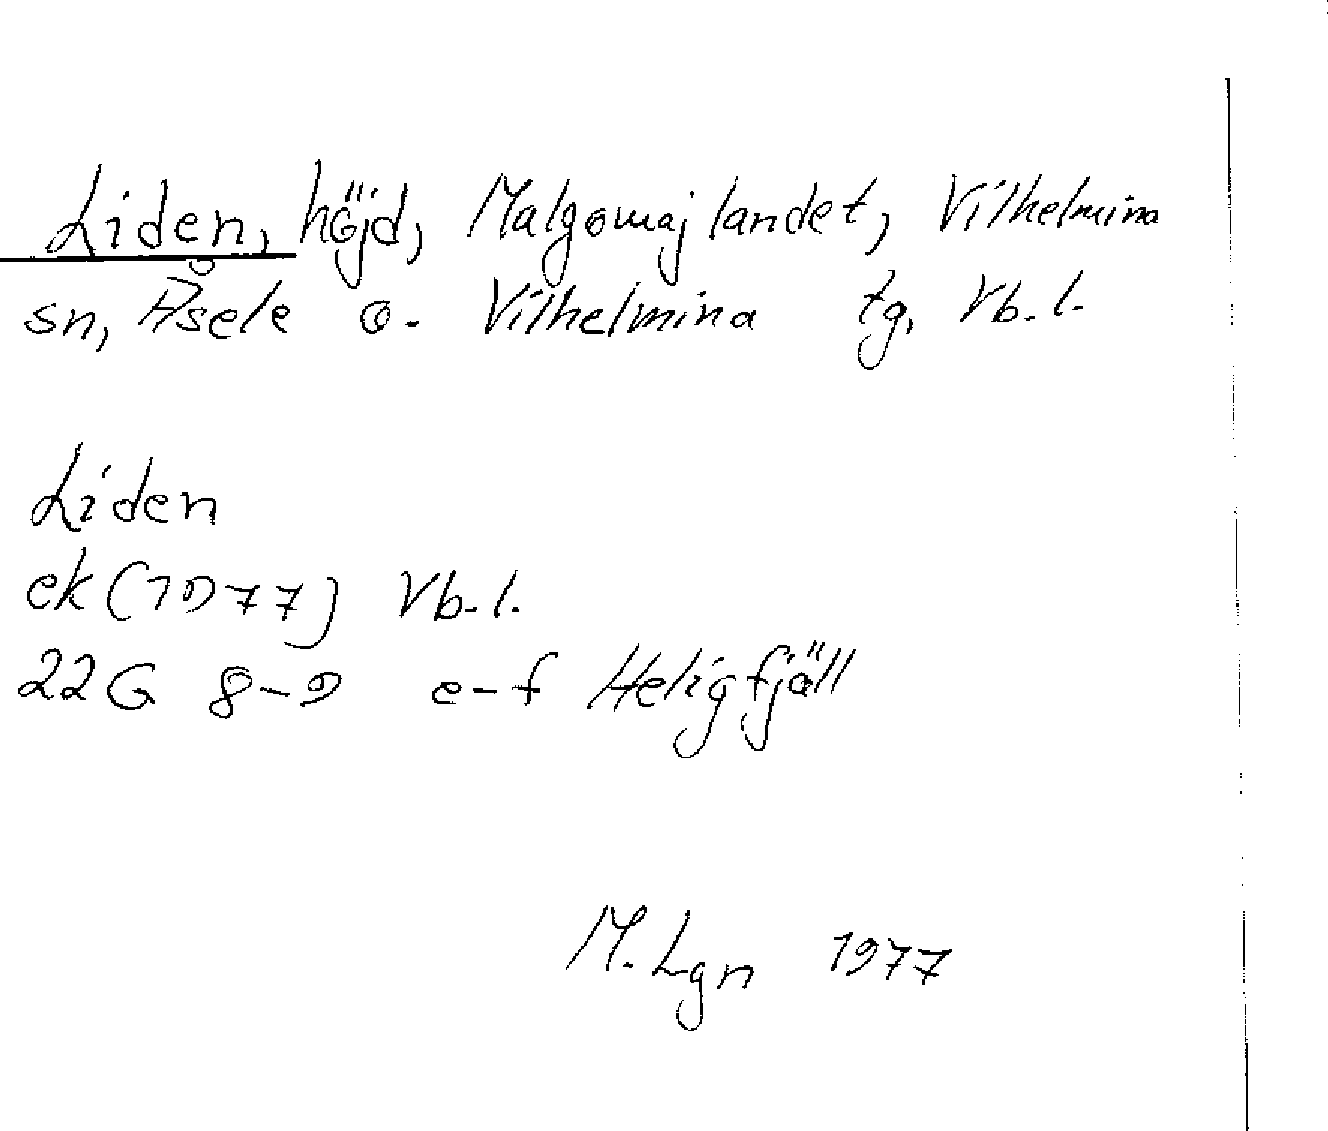 Liden, höjd, Malgomajlandet, Vilhelmina
sn, Åsele o. Vilhelmina tg, Vb. l.
Liden
ek (1977) Vb. l.
22G 8-9 e-f Heligfjäll
M. Lgn 1977